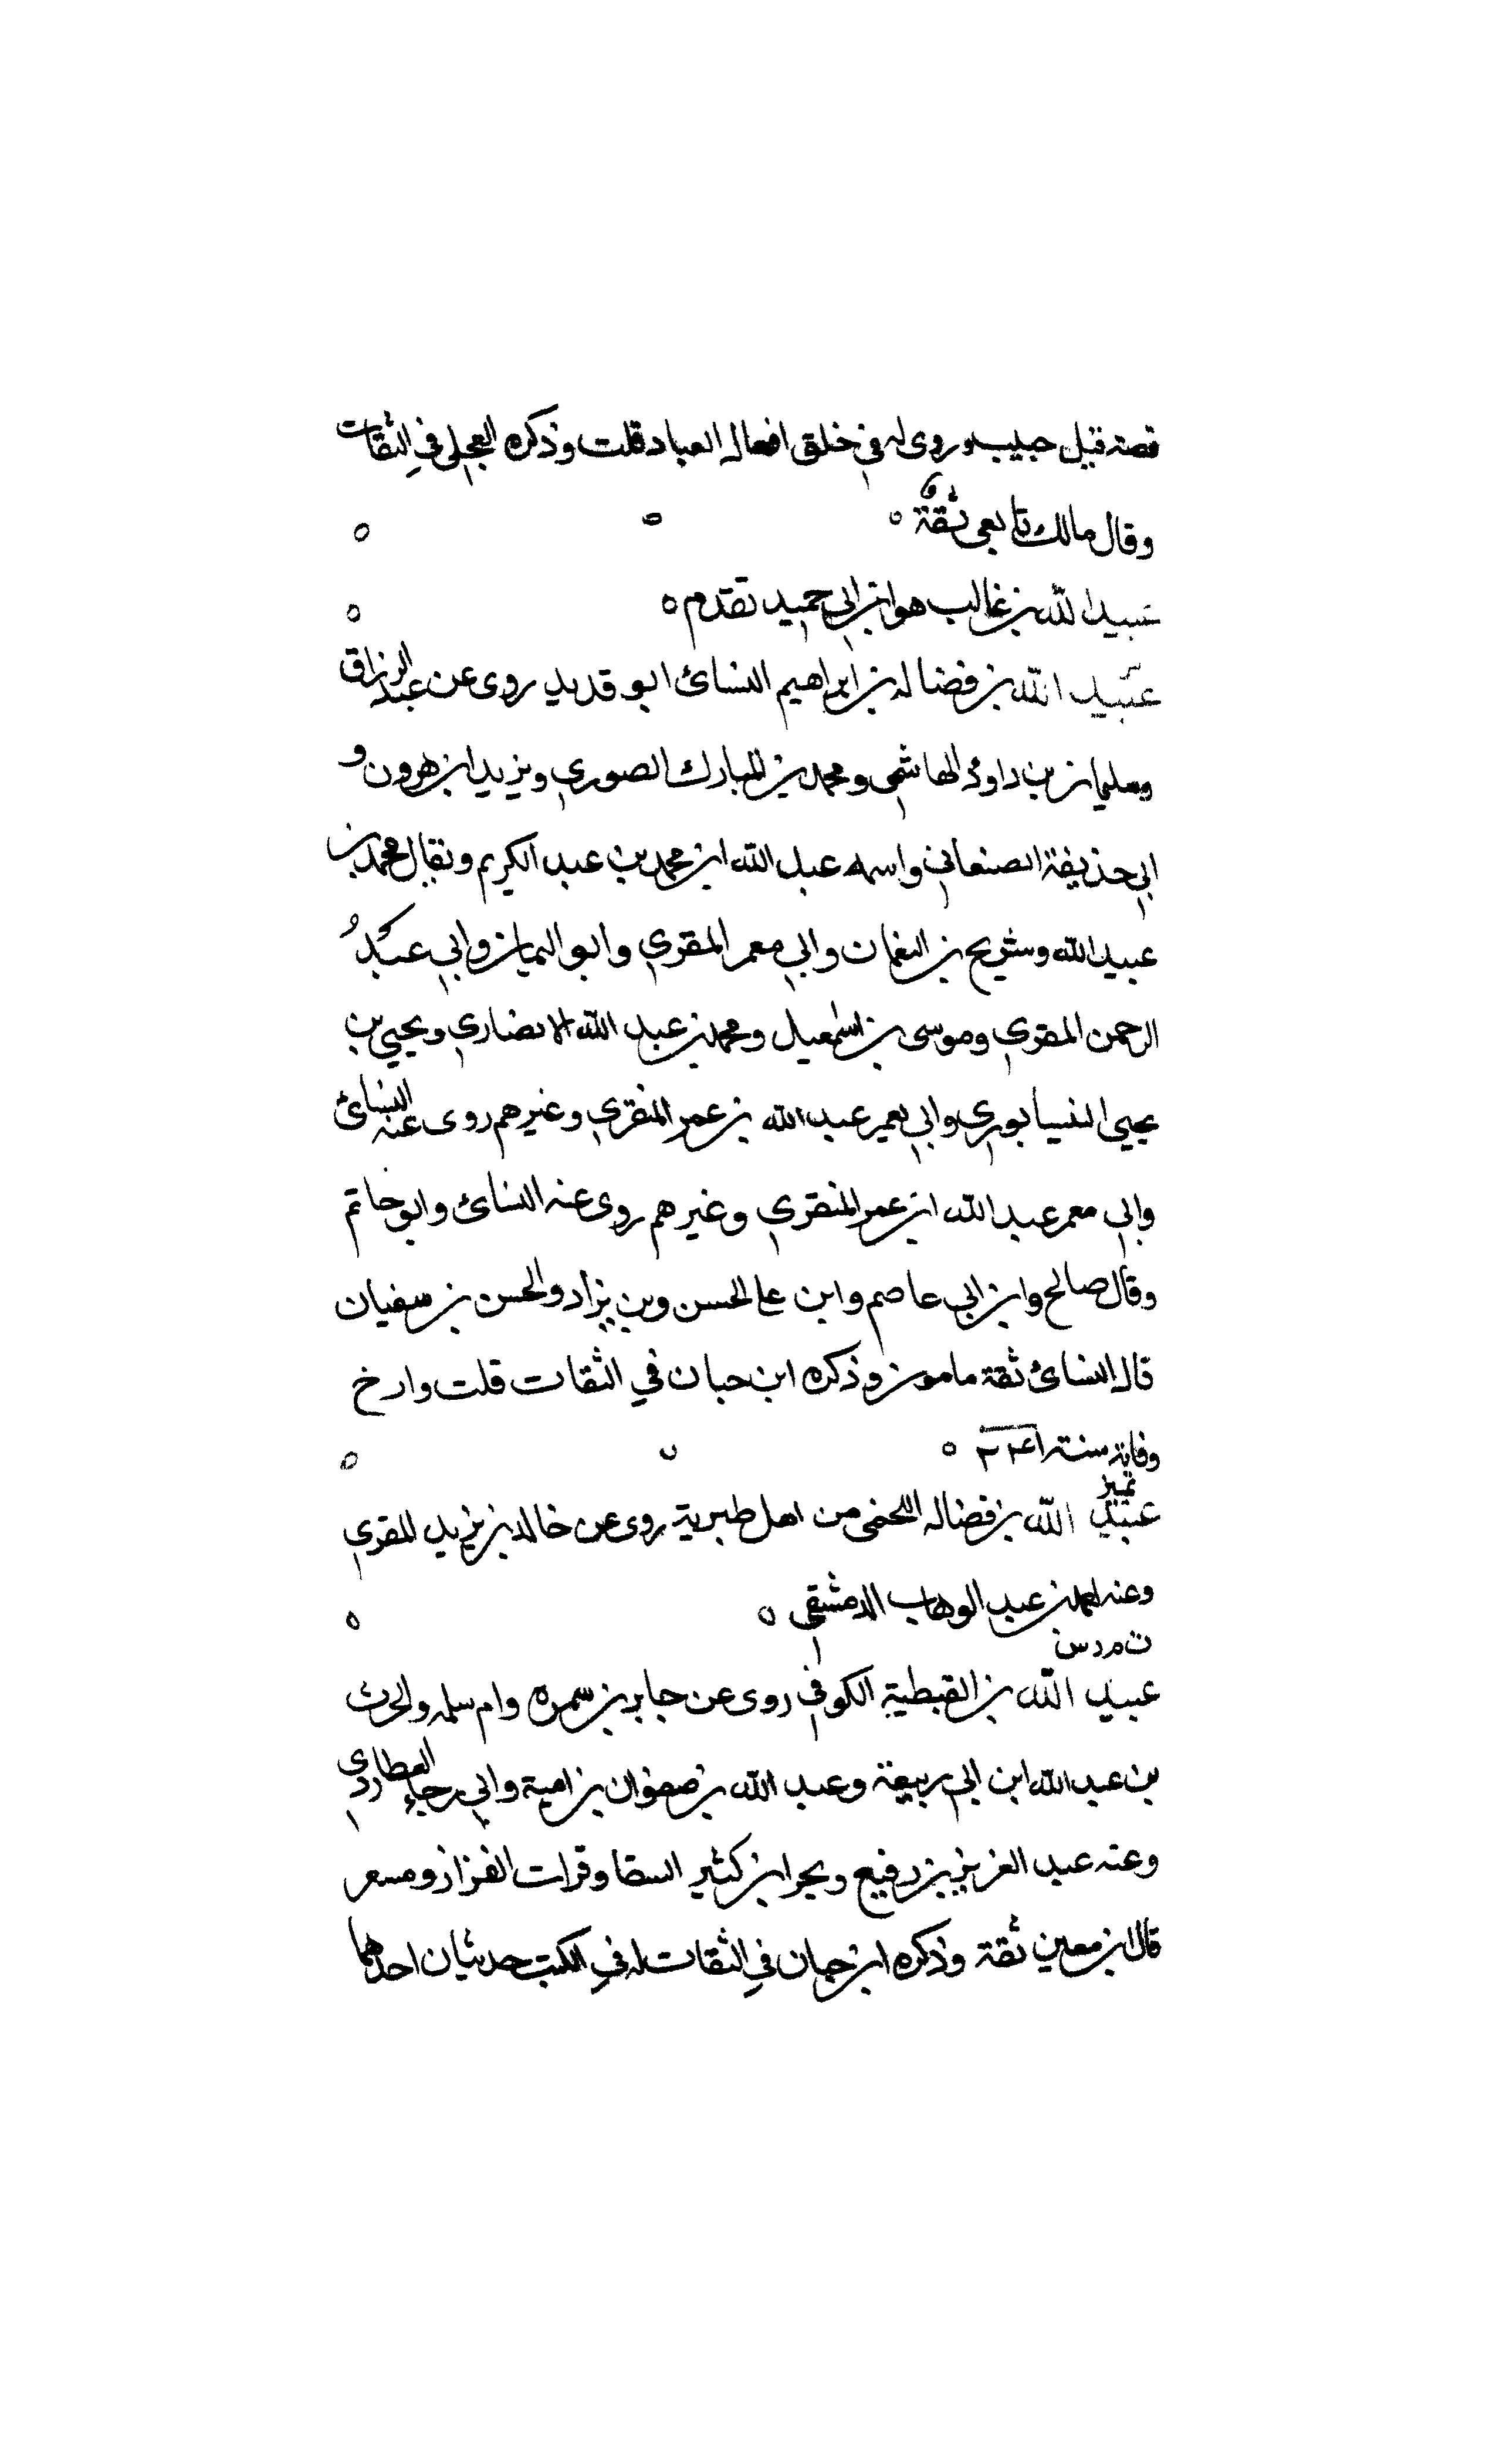 قصة قتل حبيب وروى له في خلق افعال العباد قلت وذكره العجلي في الثقات
وقال مالك تابعى ثقة
عبيد الله بن غالب هو ابن ابي حميد تقدم
عبيد الله بن فضاله بن ابراهيم النسائ ابو قديد روى عن عبد الرزاق
وسليمان بن داود الهاشمى ومحمد بن المبارك الصوري ويزيد ابن هرون و
ابي حذيفة الصنعاني واسمه عبد الله ابن محمد بن عبد الكريم ويقال محمد بن
عبيد الله وشريح بن النعمان وابي معمر المقري وابو اليمان وابي عبد
الرحمن المقري وموسى بن اسمعيل ومحمد بن عبد الله الانصاري ويحيي بن
يحيى النيسابوري وابي يعمر عبد الله بن عمر المنقري وغيرهم روى عنه النسائ
وابي معمر عبد الله ابن عمر المنقري وغيرهم روى عنه النسائ وابو حاتم
وقال صالح وابن ابي عاصم وابن على الحسن وبن يزاد والحسن بن سفيان
قال النسائ ثقة مامون وذكره ابن حبان في الثقات قلت وارخ
وفاته سنة ٢٤١
تمييز
عبيد الله بن فضاله اللخمى من اهل طبرية روى عن خالد بن يزيد المقري
وعنه احمد بن عبد الوهاب الدمشقي
م د س
عبيد الله بن القبطية الكوفي روى عن جابر بن سمره وام سلمه والحرث
بن عبد الله ابن ابي ربيعة وعبد الله بن صفوان بن امية وابي رجاء العطاردي
وعنه عبد العزيز بن رفيع وبحر ابن كثير السقا وفرات القزاز ومسعر
قال ابن معين ثقة وذكره ابن حبان في الثقات له في الكتب حديثان احدهما